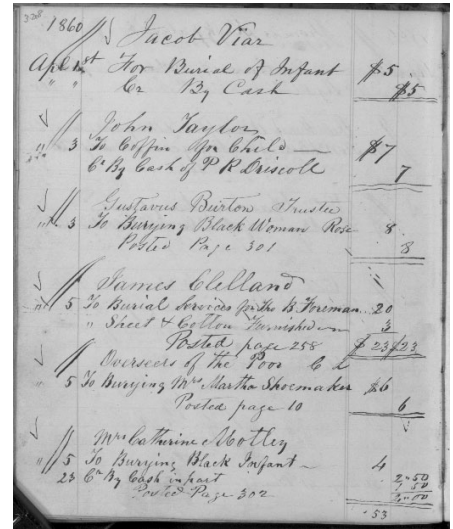 1860
Jacob Viar
Apl 1st For Burial of Infant $5
" " Cr By Cash $5
John Taylor
" 3 To Coffin for Child $7
Cr By Cash of P R Driscoll 7
Gustavus Burton Trustee
" 3 To Burying Black Woman Rose 8
Posted Page 301 8
James Clelland
" 5 To Burial Services for Mrs B. Foreman 20
" Sheet & Cotton Furnished 3
Posted page 258 $23 $23
Overseers of the Poor
" 5 To Burying Mrs Martha Shoemaker $6
Posted page 10 6
Mrs Catherine Motley
" 5 To Burying Black Infant 4
23 Cr By Cash in part 2.50
Posted Page 302
53